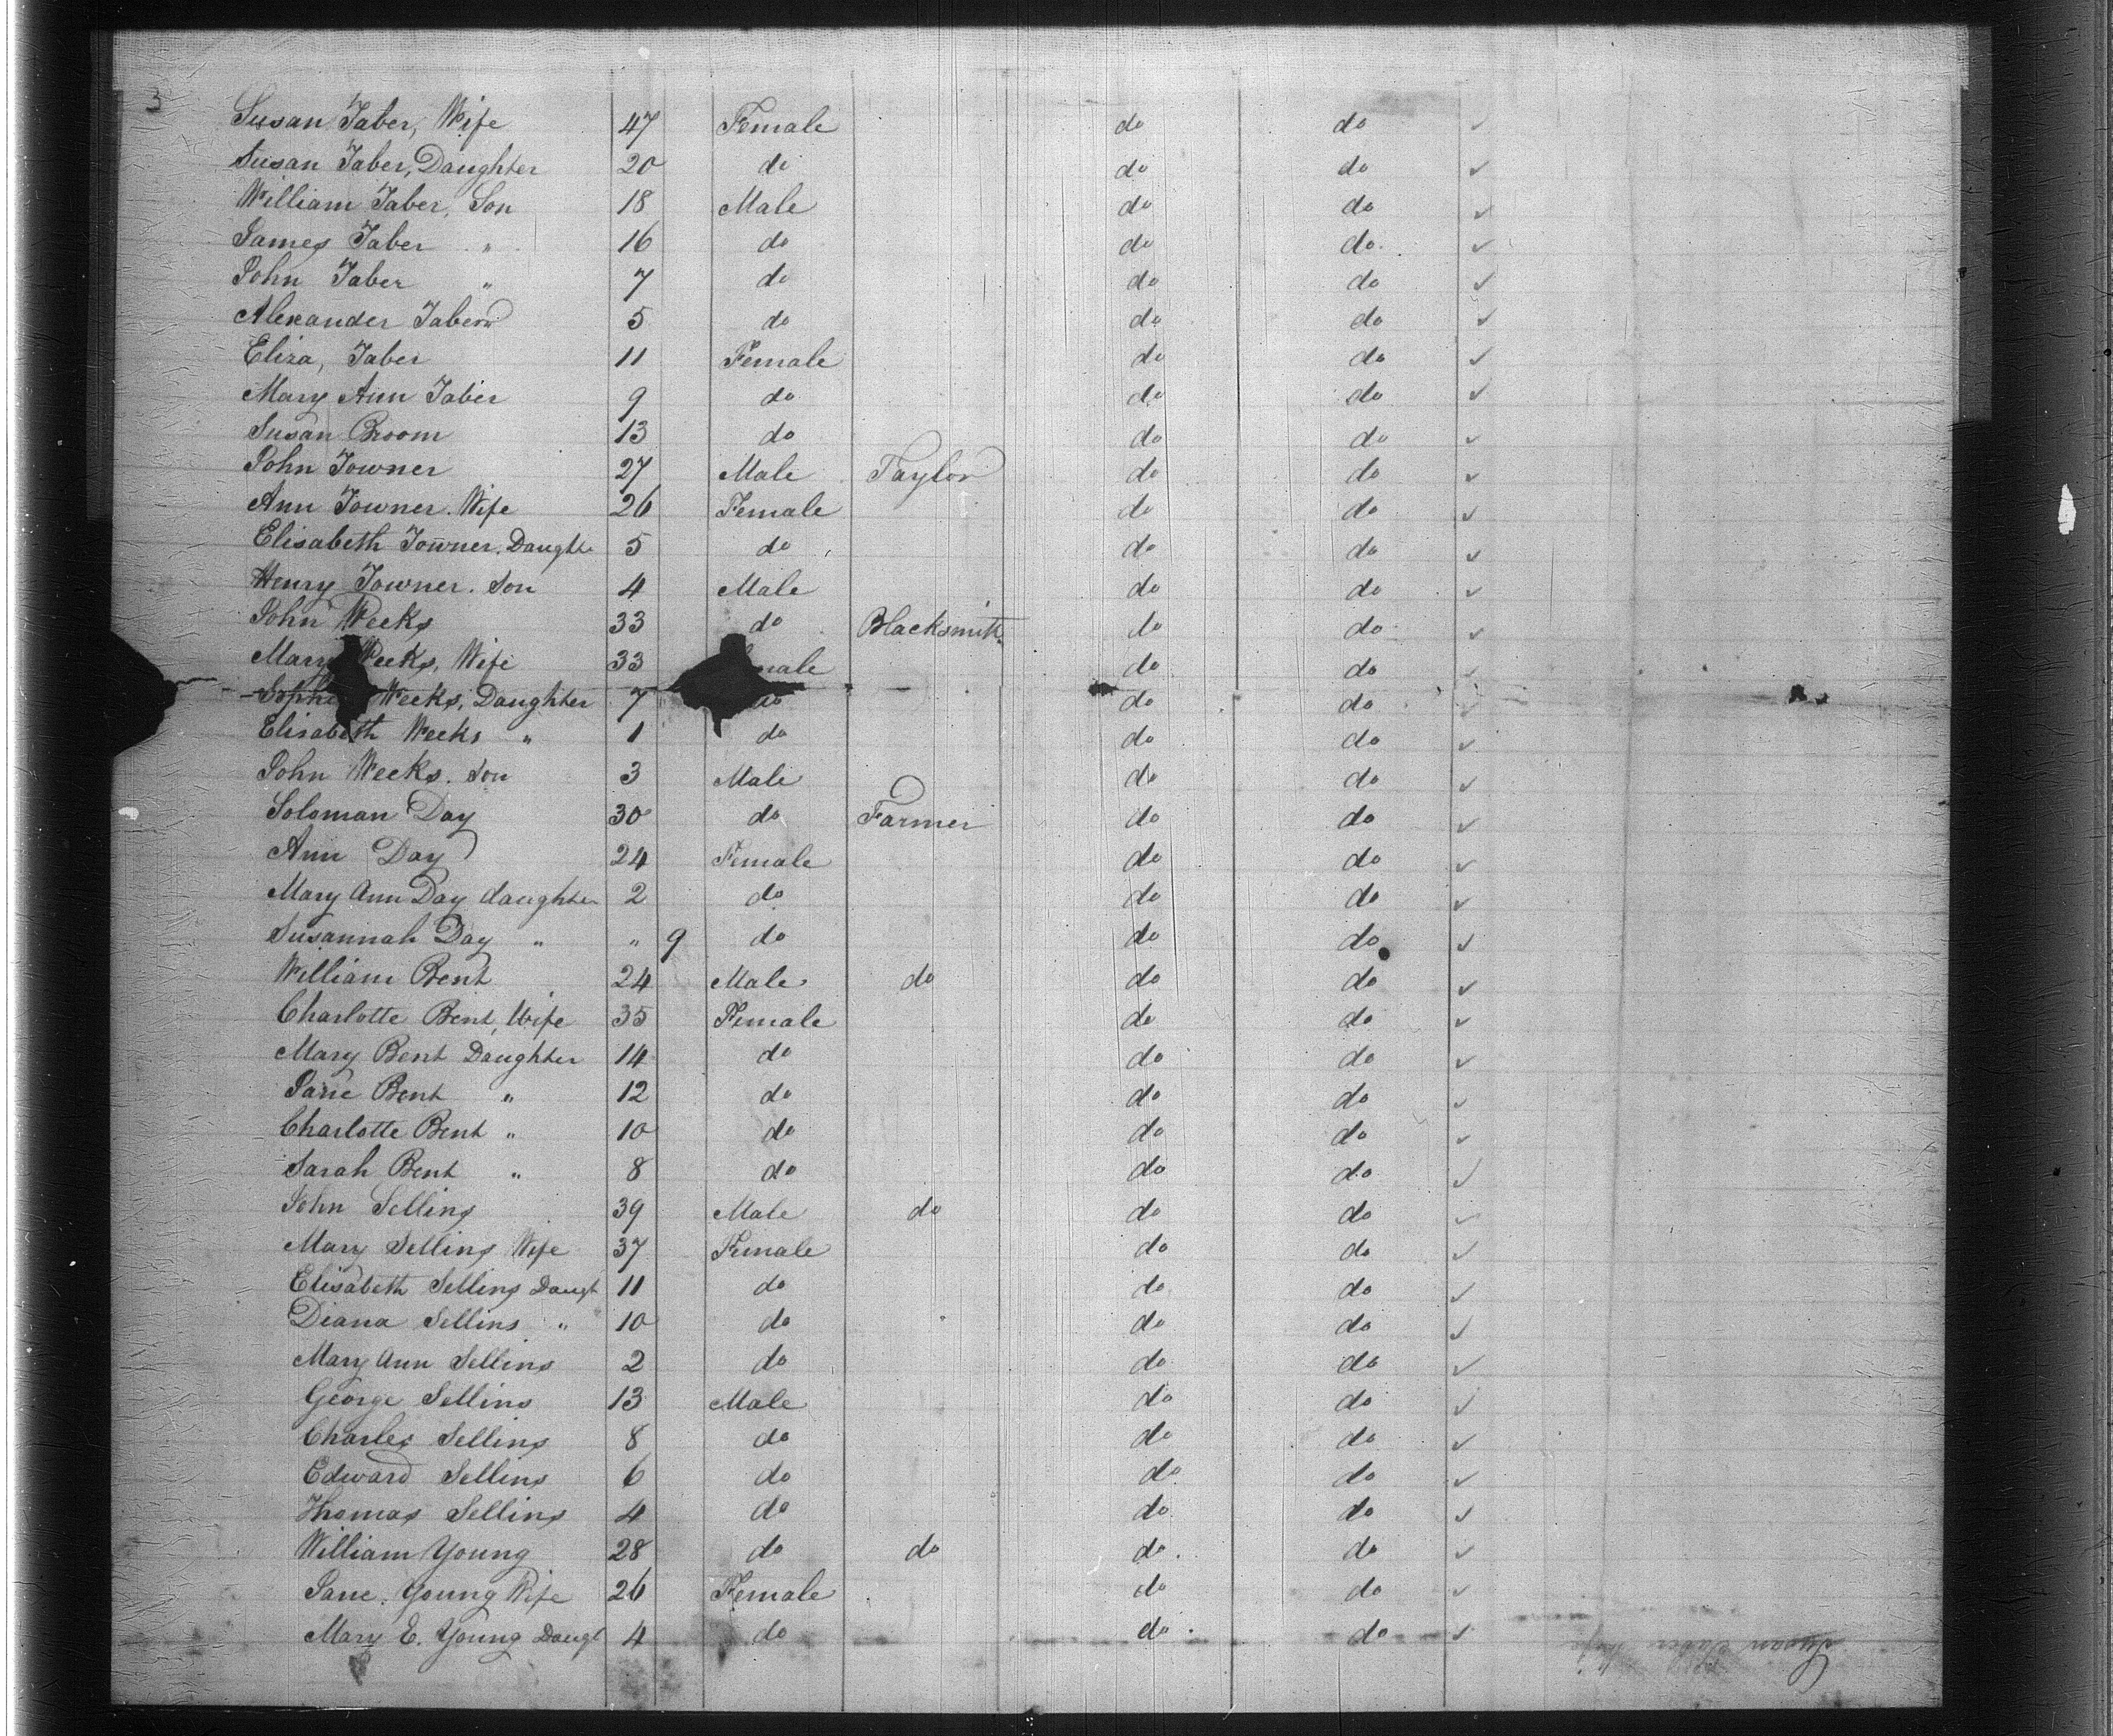 3
Susan Taber, Wife 47 Female do do ✓
Susan Taber, Daughter 20 do do do ✓
William Taber, Son 18 Male do do ✓
James Taber " 16 do do do. ✓
John Taber " 7 do do do ✓
Alexander Taber 5 do do do ✓
Eliza, Taber 11 Female do do ✓
Mary Ann Taber 9 do do do ✓
Susan Broom 13 do do do ✓
John Towner 27 Male Taylor do do ✓
Ann Towner. Wife 26 Female do do ✓
Elisabeth Towner. Daughte 5 do do do ✓
Henry Towner. Son 4 Male do do ✓
John Weeks 33 do Blacksmith do do ✓
Mary Weeks, Wife 33 male do do ✓
Weeks, Daughter 7 do do do ✓
Elisabeth Weeks " 1 do do do ✓
John Weeks. Son 3 Male do do ✓
Soloman Day 30 do Farmer do do ✓
Ann Day 24 Female do do ✓
Mary Ann Day daughter 2 do do do ✓
Susannah Day " " 9 do do do ✓
William Bent 24 Male do do do ✓
Charlotte Bent, Wife 35 Female do do ✓
Mary Bent Daughter 14 do do do ✓
Jane Bent " 12 do do do ✓
Charlotte Bent " 10 do do do ✓
Sarah Bent " 8 do do do ✓
John Sellins 39 Male do do do ✓
Mary Sellins Wife 37 Female do do ✓
Elisabeth Sellins Daugt 11 do do do ✓
Diana Sellins " 10 do do do ✓
Mary Ann Sellins 2 do do do ✓
George Sellins 13 Male do do ✓
Charles Sellins 8 do do do ✓
Edward Sellins 6 do do do ✓
Thomas Sellins 4 do do do ✓
William Young 28 do do do. do ✓
Jane. Young Wife 26 Female do do ✓
Mary E. Young Daugt 4 do do. do ✓
Susan Taber Wife